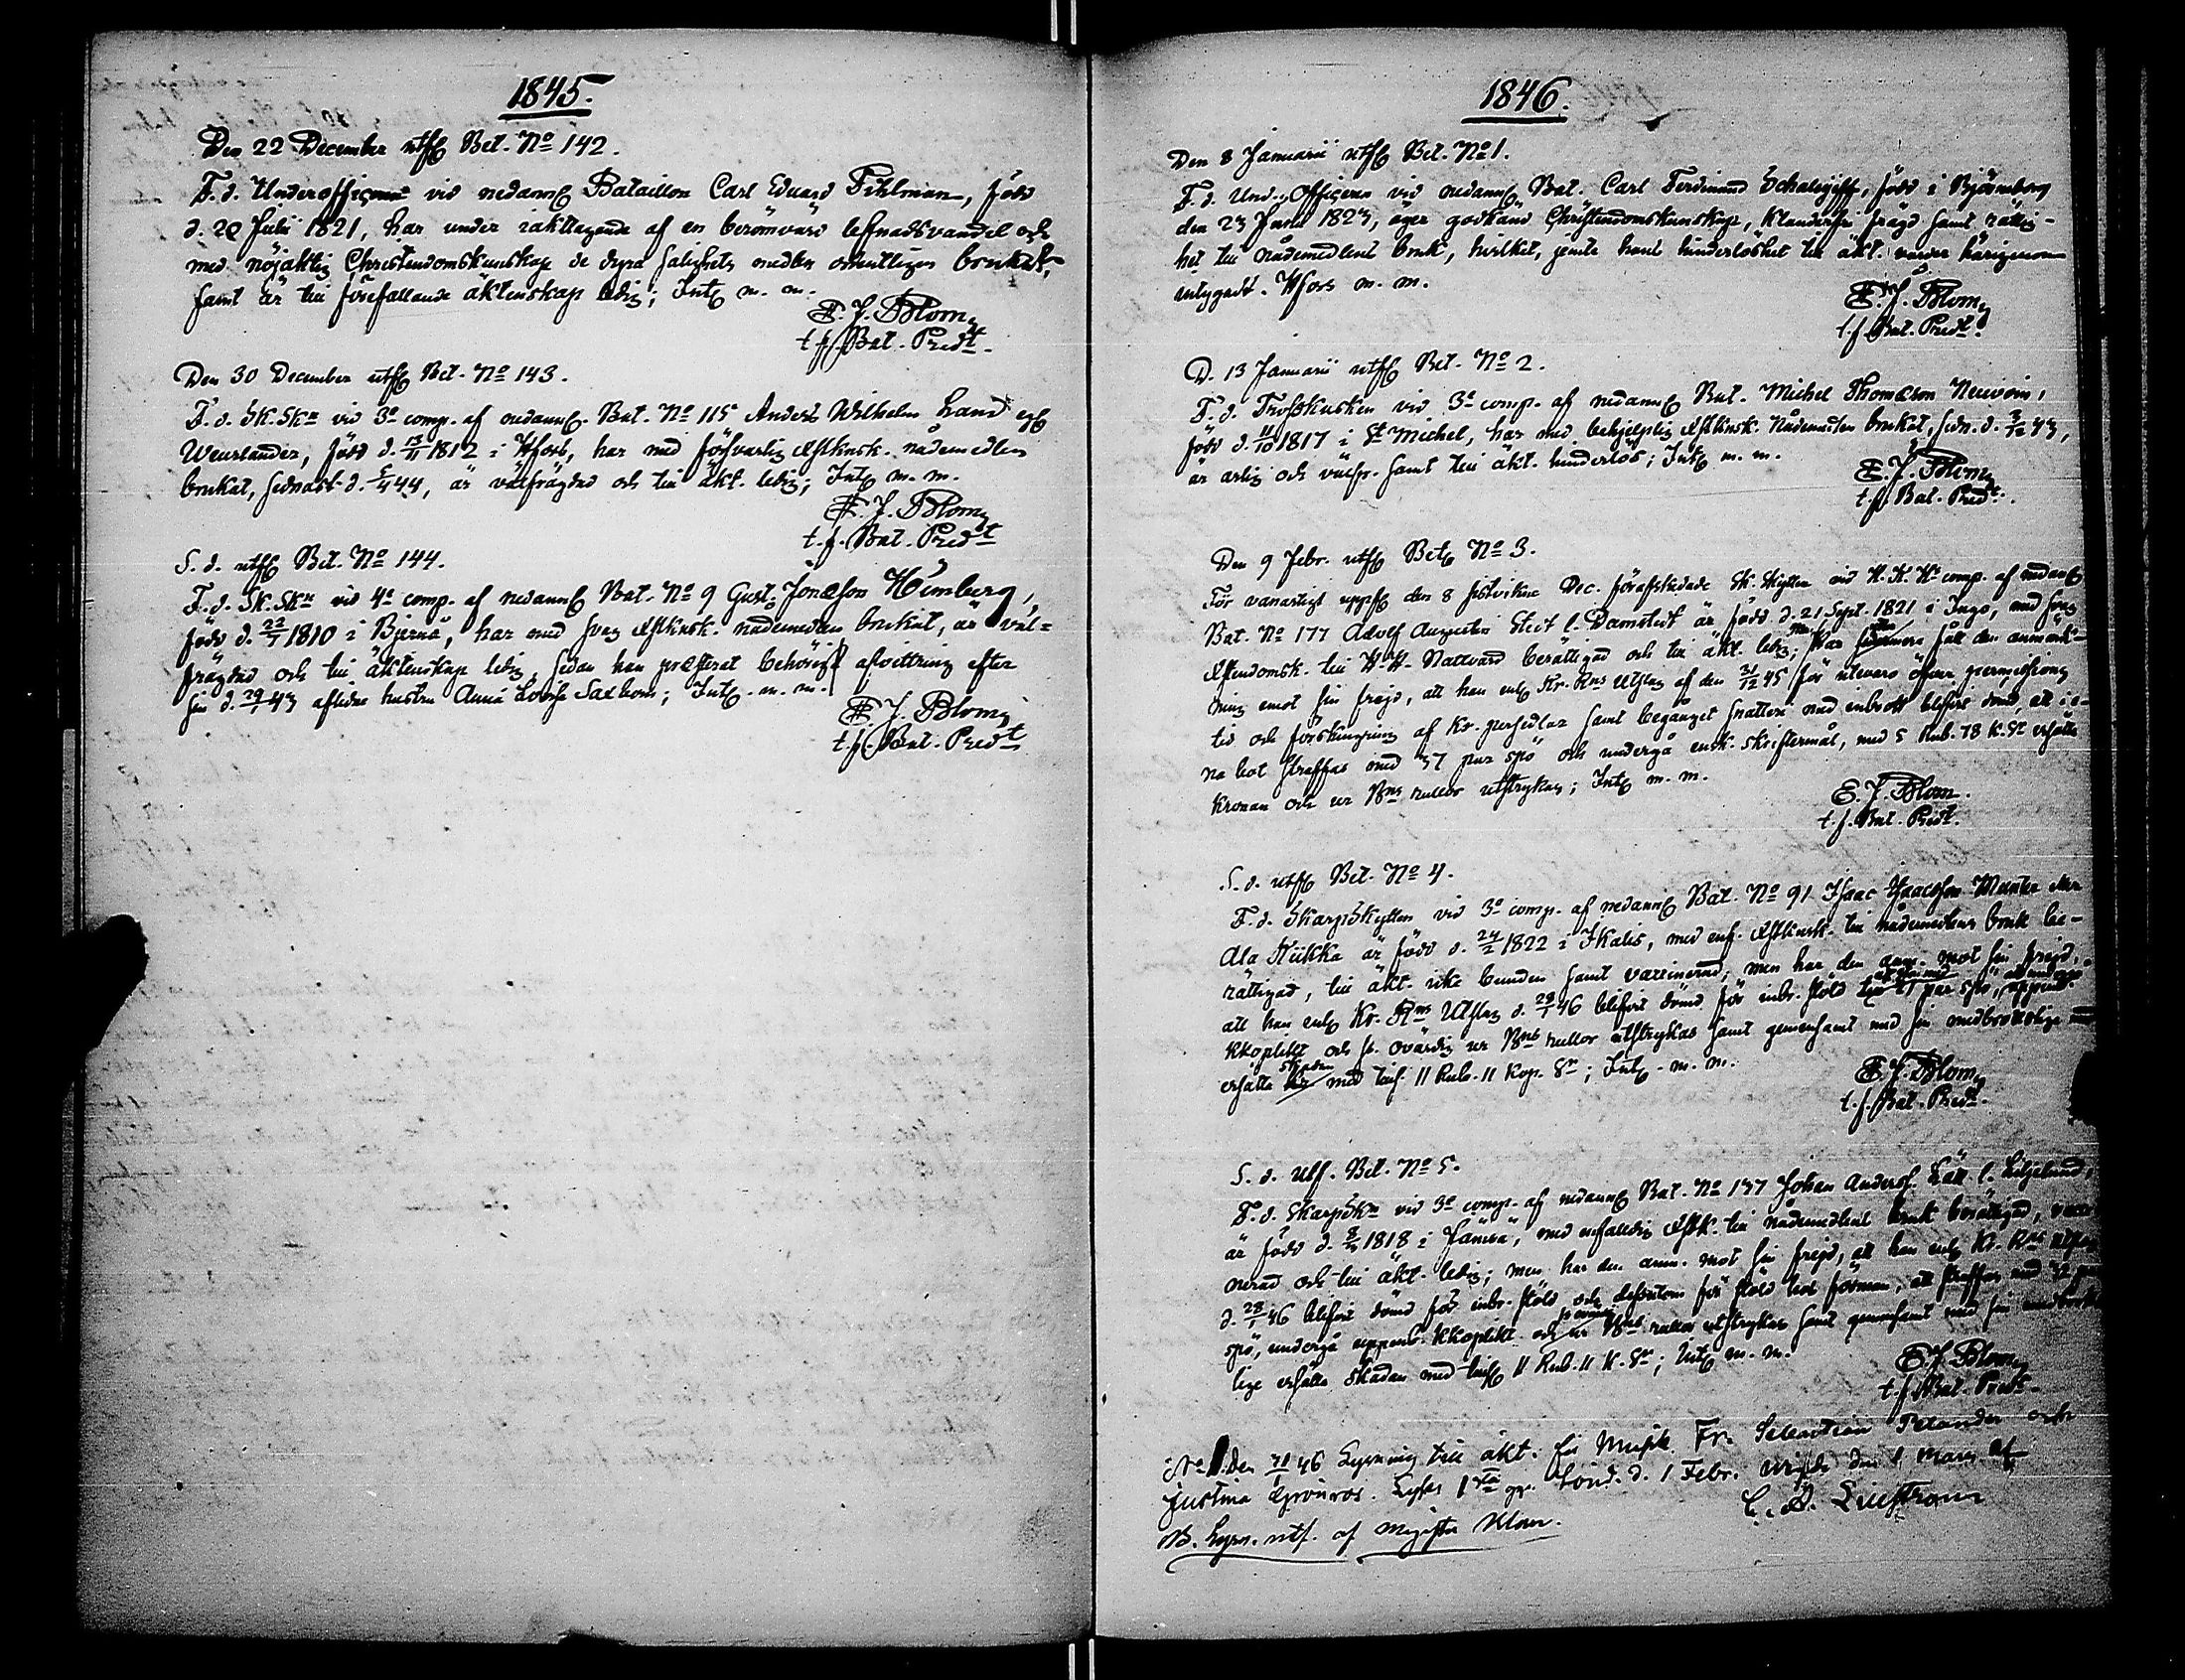 1845.
Den 22 December utfl Bet. No 142.
F. d. Underofficeren vid nedannl Bataillon Carl Eduard Fihlman, född
d. 20 Julii 1821, har under iakttagande af en berömvärd lefnadsvandel och
med nöjaktig Christendomskunskap de dyra salighets medlen ordentligen brukat,
samt är till förefallande äktenskap ledig; Int. m. m.
E. J. Blom,
t. f. Bat. Predt.
Den 30 December utfl Bet. No 143.
F. d. Sk. Skn vid 3e comp. af nedannl. Bat. No 115 Anders Wilhelm Sand
Weurlander, född d. 13/11 1812 i Hfors, har med försvarlig Xstknsk. nådemedlen
brukat, sednast d. 5/4 44, är välfrägdad och till äkt. ledig; Int. m. m.
E. J. Blom,
t. f. Bat. Predt
S. d. utfl Bet. No 144.
F. d. Sk. Skn vid 4e comp. af nedannl Bat. No 9 Gust. Jonasson Heimberg,
född d. 22/7 1810 i Bjerno, har med svag Xstknsk. nådemedlen brukat, är väl=
frägdad och till äktenskap ledig, sedan han præsterat behörig afvittring efter
sin d. 29/1 43 aflidne hustru Anna Lovisa Saxbom; Int. m. m.
E. J. Blom,
t. f. Bat. Predt
1846.
Den 8 Januarii utfl Bet. No 1.
F. d. Und. Officeren vid nedannl Bat. Carl Ferdinand Schalugiff, född i Björneborg
den 23 Junii 1823, äger godkänd Christendomskunskap, klanderfri frägd samt rättig-
het till nådemedlens bruk, hvilket, jemte hans hinderlöshet till äkt. varder härigenom
intygadt. Hfors m. m.
E. J. Blom,
t. f. Bat. Predt.
D. 13 Januarii utfl Bet. No 2.
F. d. Trosskusken vid 3e comp. af nedannl Bat. Michel Thomasson Neuvoin,
född d. 11/10 1817 i St Michel, har med behjelplig Xstknsk. Nådemedlen brukat, sedn. d. 3/12 43,
är ärlig och välfr. samt till äkt. hinderlös; Int. m. m.
E. J. Blom,
t. f. Bat. Predt.
Den 9 Febr. utfl Betl No 3.
För vanartigt uppfl den 8 sistvikne Dec. förafskedade Sk. Skytten vid H. K. Hs comp. af nedannl
Bat. No 177 Adolf Augustin Sted l. Damstedt är född d. 21 Sept. 1821 i Ingo, med svag
Xstendomsk. till H. H. Nattvard berättigad och till äkt. ledig; men har fått den anmärk-
ning emot sin frejd, att han enl Kr. Rns Utslag af den 31/12 45 för utevaro öfver permissions
tid och förskingring af Kr. persedlar samt begånget snatteri med inbrott blifvit dömd, att i e-
na bot straffas med 37 par spö och undergå ensk. skriftermål, med 5 Rub. 78 K. Sr ersätta
Kronan och ur Bns rullor utstrykas; Int. m. m.
E. J. Blom.
t. f. Bat. Predt.
S. d. utfl Bet. No 4.
F. d. SkarpSkytten vid 3e comp. af nedannl Bat. No 91 Isaac Isaacsson Munter eller
Ala Kiikka är född d. 24/2 1822 i Ikalis, med enf. Xstknsk. till nådemedlens bruk be-
rättigad, till äkt. icke bunden samt vaccinerad; men har den anm. mot sin frejd,
att han enl Kr. Rns Utslag d. 28/1 46 blifvit dömd för inbr. stöld par spö, uppenb.
kkoplikt och ss. ovärdig ur Bns rullor utstrykas samt gemensamt med sin medbrottslige
ersätta skadan med tills. 11 Rub. 11 Kop. Sr; Int. m. m.
E. J. Blom,
t. f. Bat. Predt.
S. d. Utf. Bet. No 5.
F. d. SkarpSkn vid 3e comp. af nedannl Bat. No 137 Johan Anderss. Lätt l. Liljelund,
är född d. 1818 i Jämsä, med enfaldig Xstk. till nådemedlens bruk berättigad, vacci-
nerad och till äkt. ledig; men har den anm. mot sin frejd, att han enl Kr. Rns Utslag
d. 28/1 46 blifvit dömd för inbr. stöld och dessutom för stöld hos förman, att straffas med 32 par
spö, undergå uppenb. kkoplikt och ss. ovärdig ur Bns rullor utstrykas samt gemensamt med sin medbrotts
lige ersätta skadan med tills. 11 Rub. 11 K. Sr; Int. m. m.
E. J. Blom,
t. f. Bat. Predt.
No 1. den 31/1 46 Lysning till äkt. för Musik. Fr. Sebastian Telander och
Justina Grönroos. Lystes 1sta gr. Sönd. d. 1 Febr. den 1 Mars af
B. Lysn. utf. af Magister